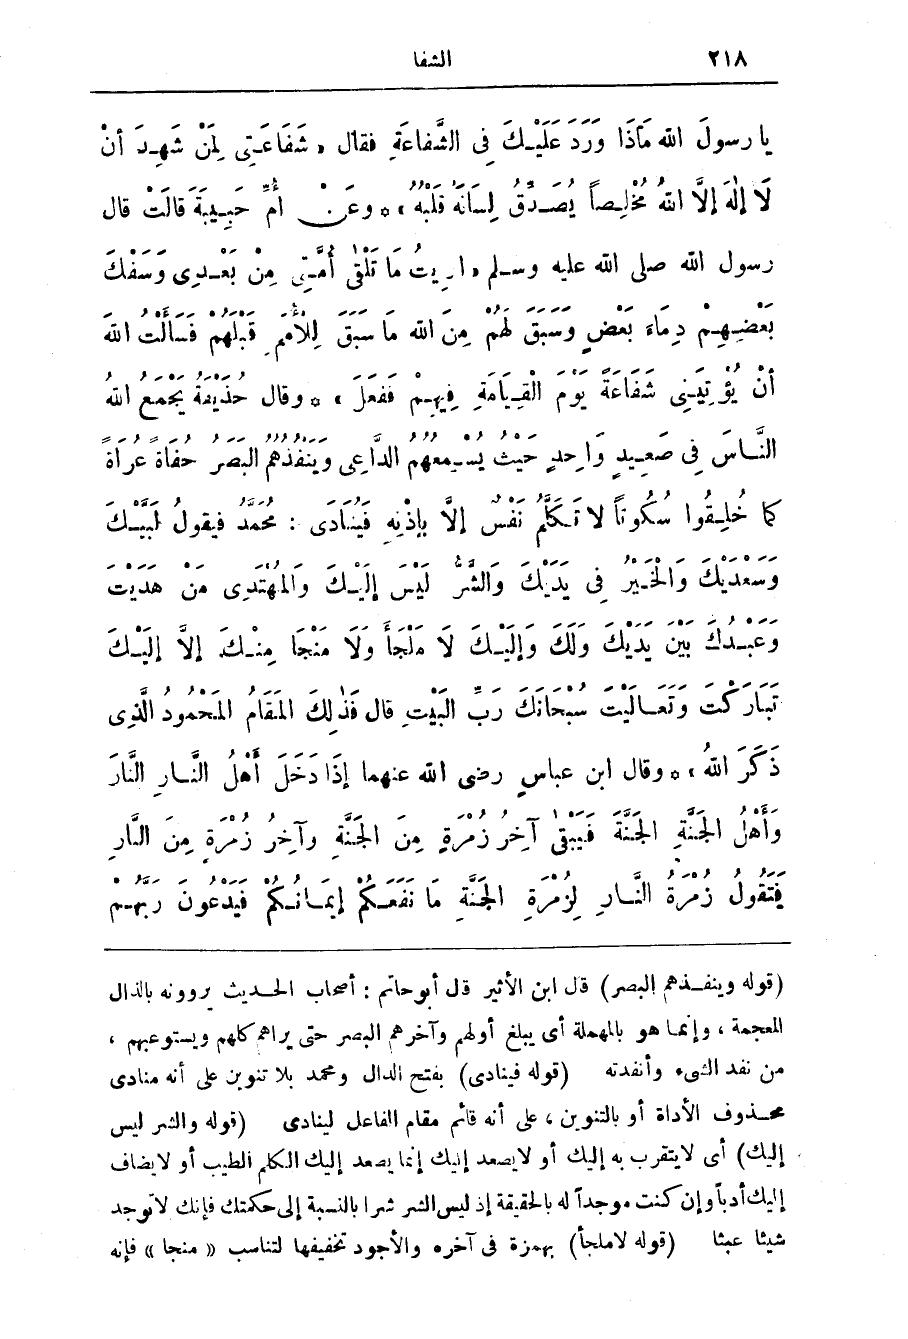 ٢١٨
الشفا
يا رسولَ الله مَاذَا وَرَدَ عَلَيْكَ فِى الشَّفَاعَةِ فقال « شَفَاعَتِى لِمَنْ شَهِدَ أنْ
لَا إلٰهَ إلَّا اللهُ مُخْلِصاً يُصَدِّقُ لِسَانَهُ قَلْبُهُ » * وعَنْ أُمِّ حَبِيبَةَ قالَتْ قال
رسول الله صلى الله عليه وسلم « أريتُ مَا تَلْقٰى أُمَّتِى مِنْ بَعْدِى وَسَفْكَ
بَعْضِهِمْ دِمَاءَ بَعْضٍ وَسَبَقَ لَهُمْ مِنَ الله مَا سَبَقَ لِلْأُمَمِ قَبْلَهُمْ فَسَألْتُ اللهَ
أنْ يُؤْتِيَنِى شَفَاعَةً يَوْمَ الْقِيَامَةِ فِيهِمْ فَفَعَلَ » * وقال حُذَيْفَةُ يَجْمَعُ اللهُ
النَّاسَ فِى صَعِيدٍ وَاحِدٍ حَيْثُ يُسْمِعُهُمُ الدَّاعِى وَيَنْفُذُهُمُ البَصَرُ حُفَاةً عُرَاةً
كما خُلِقُوا سُكُوتاً لا تَكَلَّمُ نَفْسٌ إلَّا بإذْنِهِ فَيُنَادَى : مُحَمَّدُ فيقولُ لَبَّيْكَ
وَسَعْدَيْكَ وَالْخَيْرُ فِى يَدَيْكَ وَالشَّرُّ لَيْسَ إلَيْكَ وَالمُهْتَدِى مَنْ هَدَيْتَ
وَعَبْدُكَ بَيْنَ يَدَيْكَ وَلَكَ وَإلَيْكَ لَا مَلْجَأَ وَلَا مَنْجَا مِنْكَ إلَّا إلَيْكَ
تَبَارَكْتَ وَتَعَالَيْتَ سُبْحَانَكَ رَبِّ البَيْتِ قال فَذٰلِكَ المَقَامُ المَحْمُودُ الَّذِى
ذَكَرَ اللهُ » * وقال ابن عباسٍ رضى الله عنهما إذَا دَخَلَ أَهْلُ النَّارِ النَّارَ
وَأَهْلُ الْجَنَّةِ الْجَنَّةَ فَيَبْقٰى آخِرُ زُمْرَةٍ مِنَ الْجَنَّةِ وآخِرُ زُمْرَةٍ مِنَ النَّارِ
فَتَقُولُ زُمْرَةُ النَّارِ لِزُمْرَةِ الْجَنَّةِ مَا نَفَعَكُمْ إيمَانُكُمْ فَيَدْعُونَ رَبَّهُمْ
(قوله وينفذهم البصر) قل ابن الأثير قل أبو حاتم : أصحاب الحديث يروونه بالذال
المعجمة ، وإنما هو بالمهملة أى يبلغ أولهم وآخرهم البصر حتى يراهم كلهم ويستوعبهم ،
من نفد الشىء وأنفدته (قوله فينادى) بفتح الدال ومحمد بلا تنوين على أنه منادى
محذوف الأداة أو بالتنوين ، على أنه قائم مقام الفاعل لينادى (قوله والشر ليس
إليك) أى لا يتقرب به إليك أو لا يصعد إليك إنما يصعد إليك الكلم الطيب أو لا يضاف
إليك أدباً وإن كنت موجداً له بالحقيقة إذ ليس الشر شرا بالنسبة إلى حكمتك فإنك لا توجد
شيئا عبثا (قوله لا ملجأ) بهمزة فى آخره والأجود تخفيفها لتناسب « منجا » فإنه